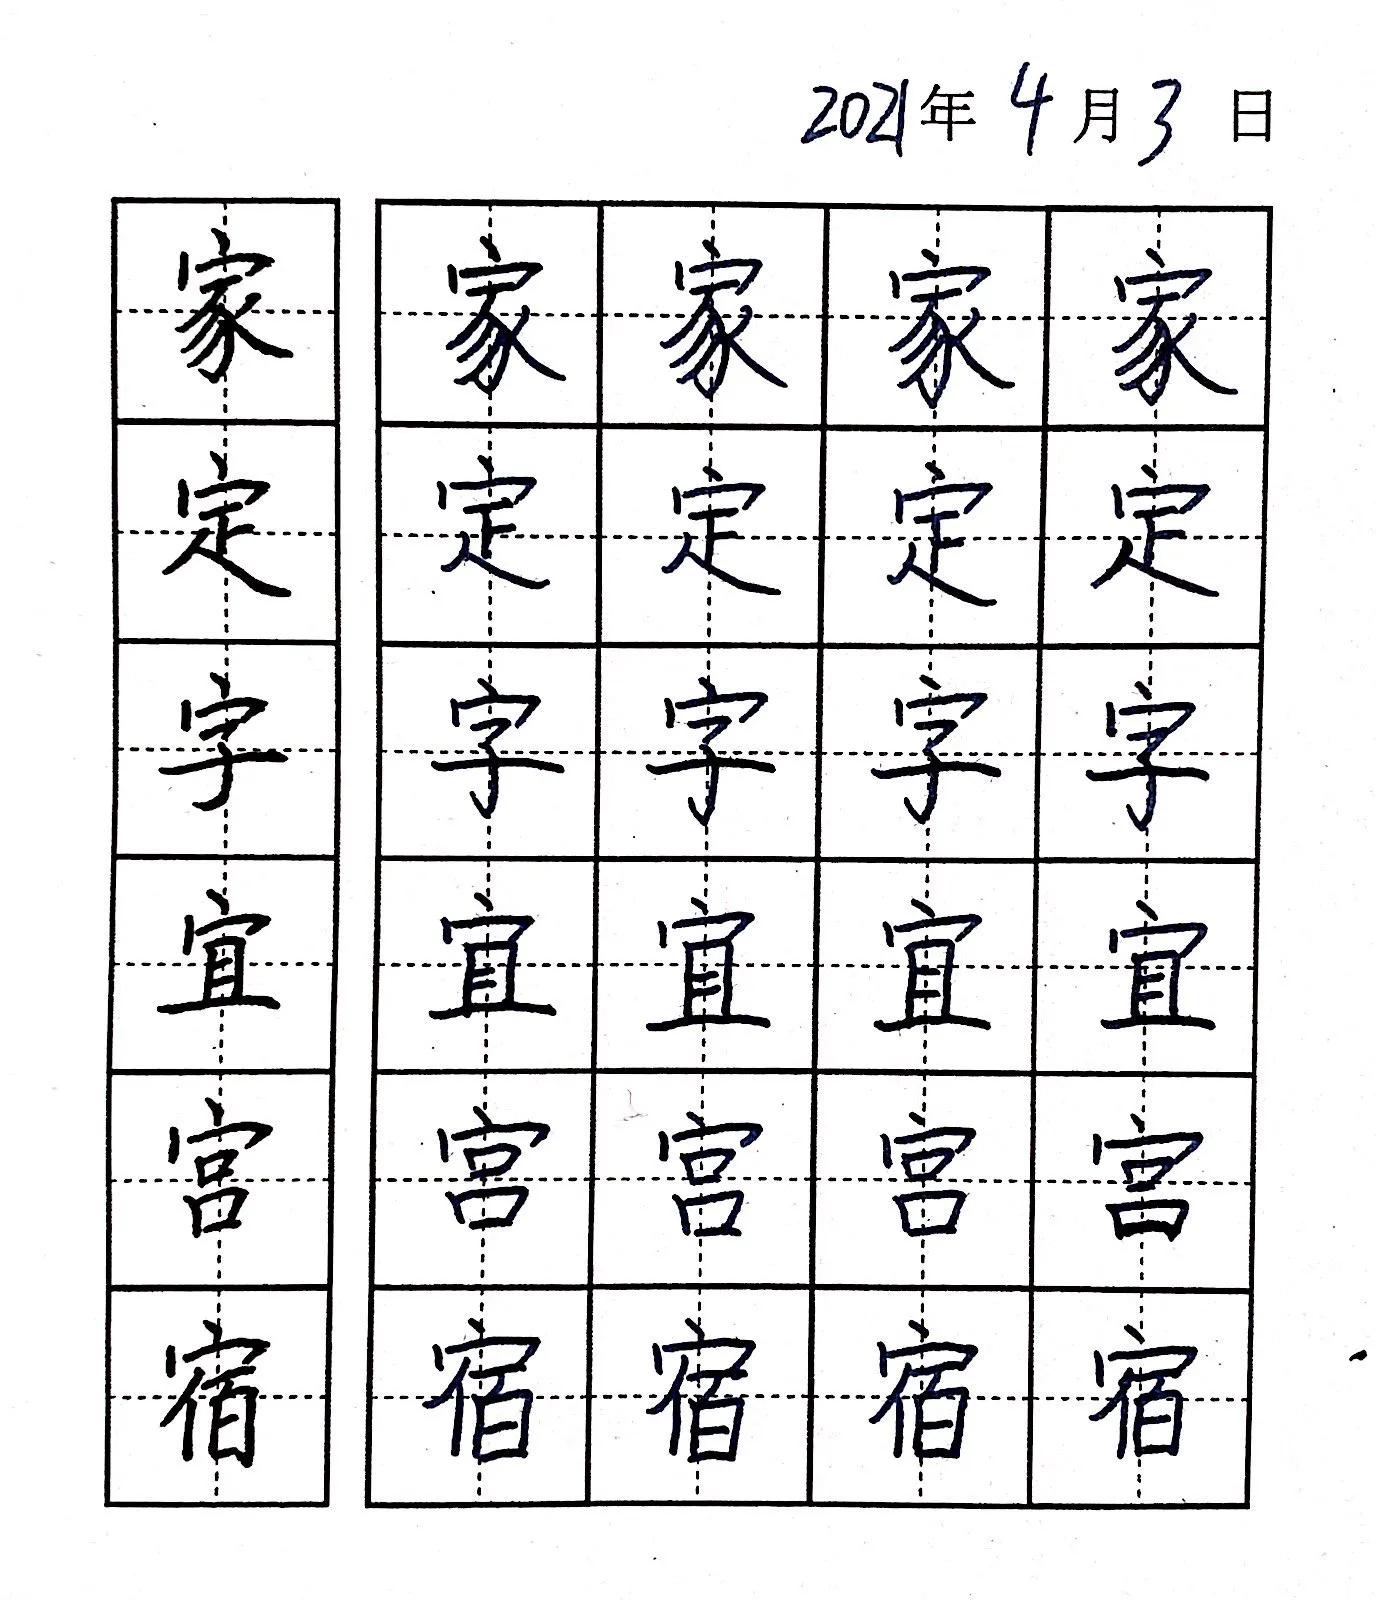 2021年4月3日
家 家 家 家 家
定 定 定 定 定
字 字 字 字 字
宜 宜 宜 宜 宜
宫 宫 宫 宫 宫
宿 宿 宿 宿 宿